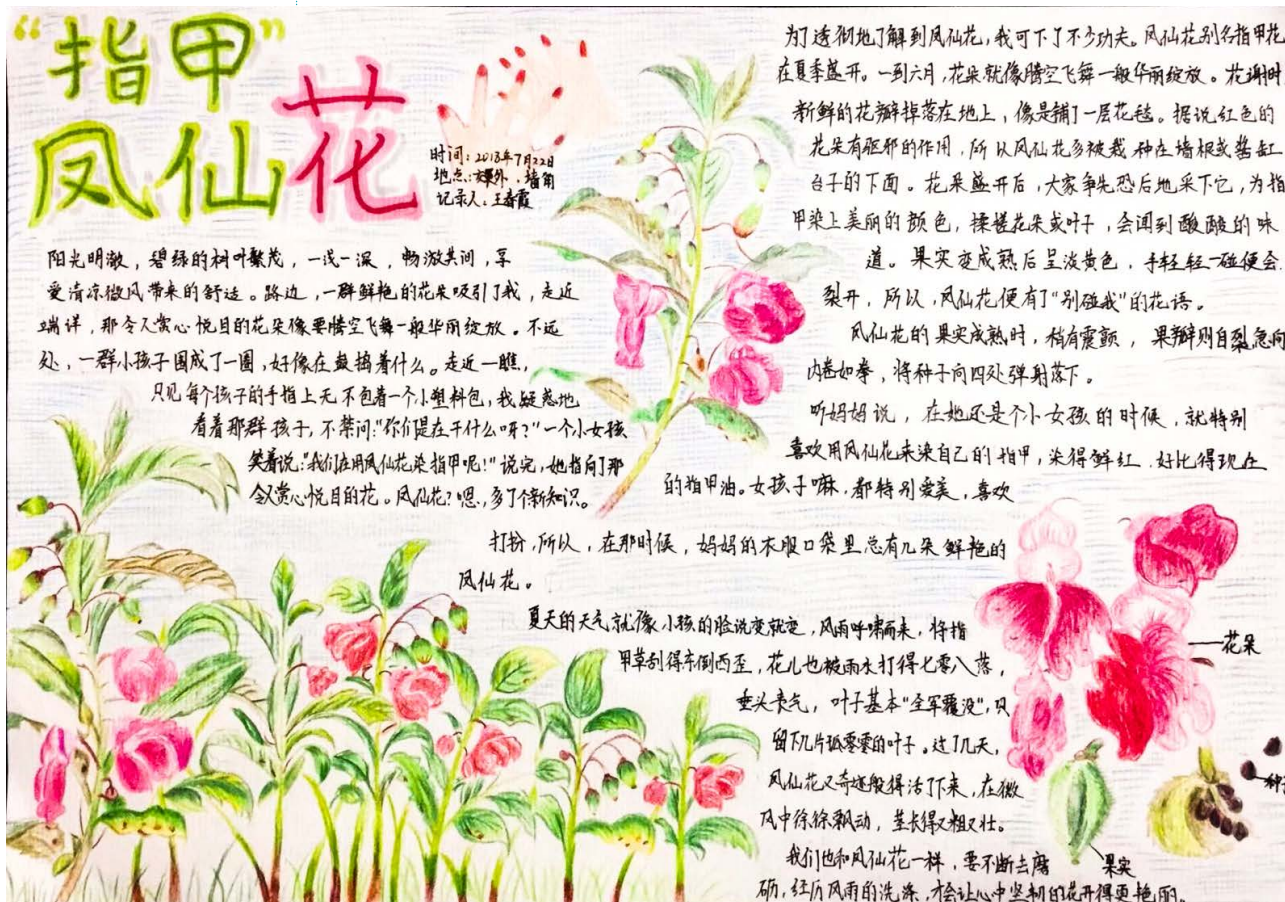 “指甲”
凤仙花
时间：2018年7月22日
地点：野外、墙角
记录人：王春霞
阳光明澈，碧绿的树叶繁茂，一浅一深，畅游其间，享
受清凉微风带来的舒适。路边，一群鲜艳的花朵吸引了我，走近
端详，那令人赏心悦目的花朵像要腾空飞舞一般华丽绽放。不远
处，一群小孩子围成了一圈，好像在鼓捣着什么。走近一瞧，
只见每个孩子的手指上无不包着一个小塑料包，我疑惑地
看着那群孩子，不禁问：“你们是在干什么呀？”一个小女孩
笑着说：“我们在用凤仙花染指甲呢！”说完，她指向了那
令人赏心悦目的花。凤仙花？嗯，多了个新知识。
为了透彻地了解到凤仙花，我可下了不少功夫。凤仙花别名指甲花
在夏季盛开。一到六月，花朵就像腾空飞舞一般华丽绽放。花谢时
新鲜的花瓣掉落在地上，像是铺了一层花毯。据说红色的
花朵有驱邪的作用，所以凤仙花多被栽种在墙根或酱缸
台子的下面。花朵盛开后，大家争先恐后地采下它，为指
甲染上美丽的颜色，揉搓花朵或叶子，会闻到酸酸的味
道。果实变成熟后呈淡黄色，手轻轻一碰便会
裂开，所以，凤仙花便有了“别碰我”的花语。
凤仙花的果实成熟时，稍有震颤，果瓣则自裂急向
内卷如拳，将种子向四处弹射落下。
听妈妈说，在她还是个小女孩的时候，就特别
喜欢用凤仙花来染自己的指甲，染得鲜红，好比得现在
的指甲油。女孩子嘛，都特别爱美，喜欢
打扮，所以，在那时候，妈妈的衣服口袋里总有几朵鲜艳的
凤仙花。
夏天的天气就像小孩的脸说变就变，风雨呼啸而来，将指
甲草刮得东倒西歪，花儿也被雨水打得七零八落，
垂头丧气，叶子基本“全军覆没”，只
留下几片孤零零的叶子。过了几天，
凤仙花又奇迹般得活了下来，在微
风中徐徐飘动，茎长得又粗又壮。
我们也和凤仙花一样，要不断去磨
砺，经历风雨的洗涤，才会让心中坚韧的花开得更艳丽。
花朵
种
果实